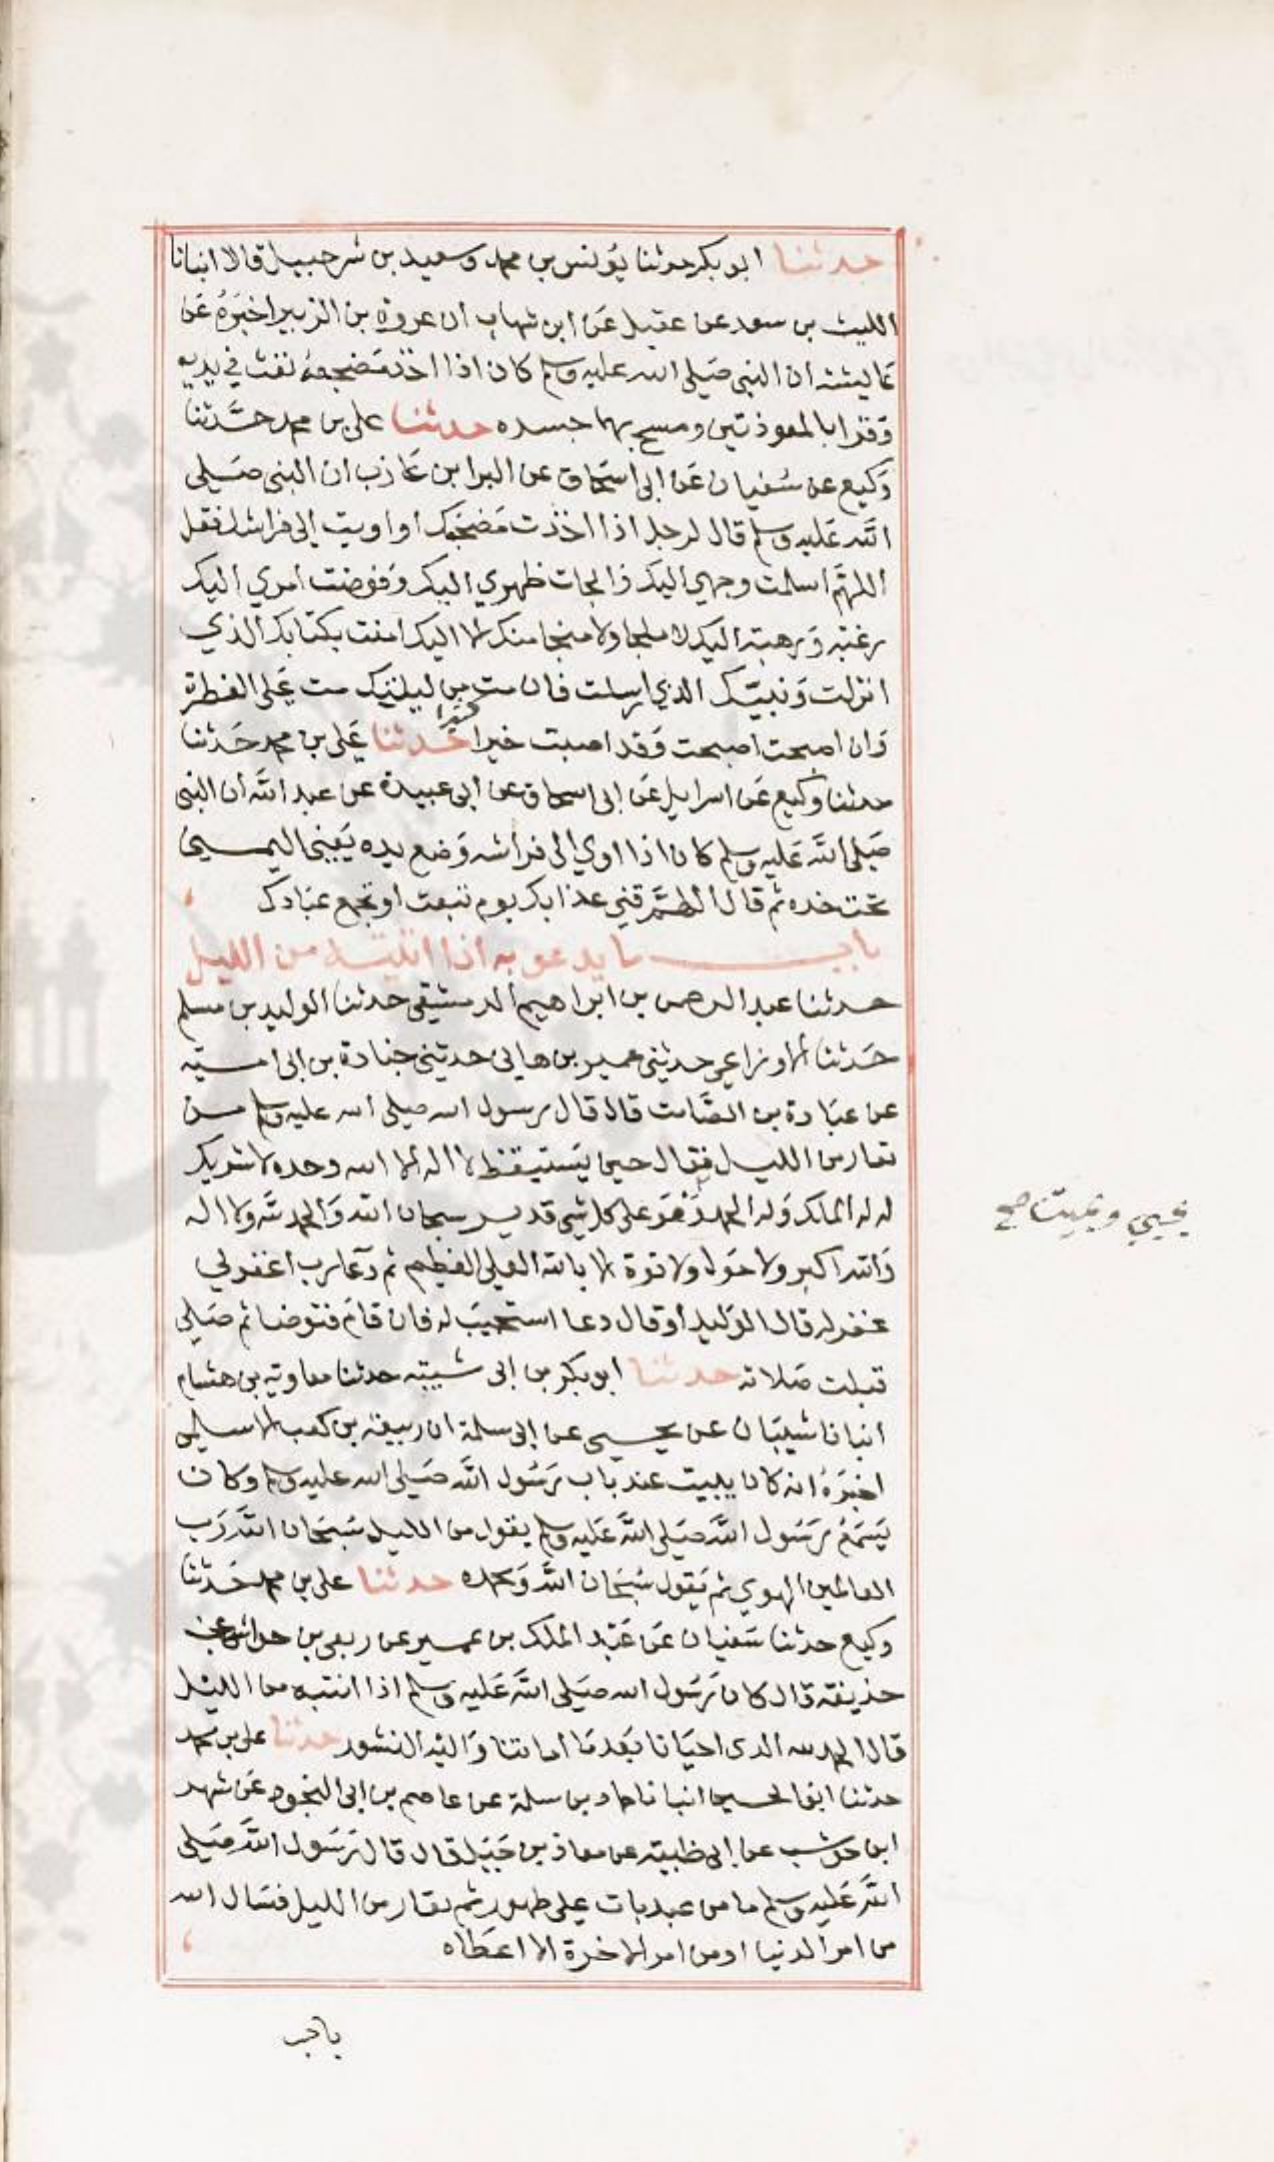 حدثنا ابو بكر حدثنا يُونس بن محمد وسعيد بن شرحبيل قالا انبانا
الليث بن سعد عن عقيل عَن ابن شهاب ان عروة بن الزبير اخبَرهُ عَن
عَايشة ان النبي صَلى الله عليه وسلم كان اذا اخذ مَضجعهُ نفث في يديه
وَقرا بالمعوذتين ومسح بهما جسده حدثنا على بن محمد حَدَّثنا
وَكيع عن سُفيان عَن ابى اسحَاق عن البرا بن عَازب ان النبى صَلى
اللَّه عَليه وسلم قال لرجل اذا اخذت مَضجعك او اويت الى فراشك فقل
اللهمَّ اسلمت وجهي اليك وَالجات ظهري اليك وَفوضت امري اليك
رغبة وَرهبة اليك لا ملجا ولا منجا منك الا اليك امنت بكتابك الذي
انزلت وَنبيّك الذي ارسلت فان مت من ليلتك مت عَلى الفطرة
وَان اصبحت اصبحت وَقد اصبت خيرا كثيرا حَدثنا عَلى بن محمد حَدثنا
حدثنا وكيع عَن اسرايل عَن ابى اسحاق عن ابى عبيدة عن عبد اللَّه ان النبى
صَلى اللَّه عَليه وسلم كان اذا اوي الى فراشه وَضع يده يَعنى اليمسين
تحت خده ثم قال اللهمَّ قني عذابك يوم تبعث او تجمع عبَادك
باب ما يدعو به اذا انتبه من الليل
حدثنا عبد الرحمن بن ابراهيم الدمشقى حدثنا الوليد بن مسلم
حَدثنا الاوزاعي حدثنى عمير بن هانى حدثنى جنادة بن ابى امية
عن عبَادة بن الصَّامت قال قال رسول الله صلى الله عليه وسلم من
تعار من الليل فقال حين يَستيقظ لا اله الا الله وحده لا شريك
له له الملك وَله الحمد وَهوَ على كل شي قدير سبحان الله وَالحمد للَّه ولا اله
وَالله اكبر ولا حَول ولا قوة الا بالله العلي العظيم ثم دَعا رب اغفر لي
غفر له قال الوَليد أو قال دعا استجيبَ له فان قامَ فتوضا ثم صَلى
قبلت صَلاته حدثنا ابو بكر بن ابى شيبة حدثنا معاوية بن هشام
انبانا شيبَان عن يحيى عن ابى سلمة ان ربيعة بن كعب الاسلمى
اخبرَهُ انه كان يبيت عند باب رَسُول اللَّه صَلى الله عليه وسلم وكان
يَسمَعُ رَسُول اللَّه صَلى اللَّه عَليه وسلم يقول من الليل سُبحَان اللَّه رَب
العالمين الهوي ثم يَقول سُبحَان اللَّه وَبحمده حدثنا على بن محمد حَدثنا
وكيع حدثنا سَفيان عَن عَبد الملك بن عمير عن ربعى بن حراش عن
حذيفة قال كان رَسُول الله صَلى اللَّه عَليه وسلم اذا انتبه من الليل
قال الحمد لله الذى احيَانا بَعد مَا اماتنا وَاليه النشور حدثنا على بن محمد
حدثنا ابو الحسين انبانا حماد بن سلمة عن عاصم بن ابى النجود عَن شهر
ابن حوشب عن ابى ظبية عن معاذ بن جَبَل قال قال رَسُول اللَّه صَلى
اللَّه عَليه وسلم ما من عبد بات على طهور ثم تعار من الليل فسَال الله
من امر الدنيا او من امر الاخرة الا اعطاه
يحيي ويميت صح
باب